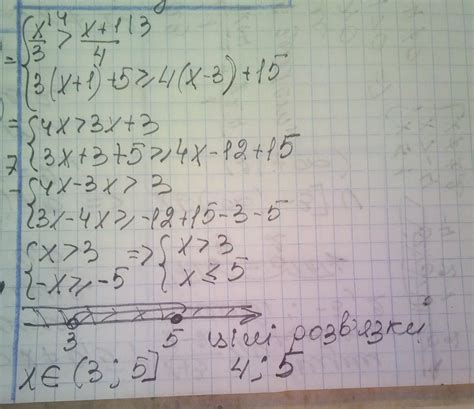 {x/3 |4 > x+1/4 |3
= {3(x+1)+5≥4(x-3)+15
= {4x>3x+3
{3x+3+5≥4x-12+15
{4x-3x>3
{3x-4x≥-12+15-3-5
{x>3 => {x>3
{-x≥-5 {x≤5
3 5 цілі розв'язки
x∈(3;5] 4;5